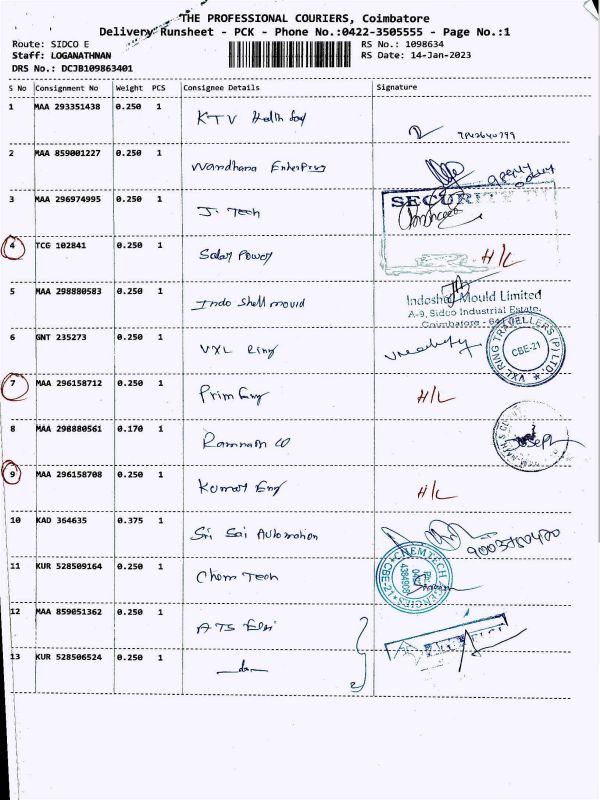 THE PROFESSIONAL COURIERS, Coimbatore
Delivery Runsheet - PCK - Phone No.:0422-3505555 - Page No.:1
Route: SIDCO E
RS No.: 1098634
Staff: LOGANATHNAN
RS Date: 14-Jan-2023
DRS No.: DCJB109863401
S No Consignment No Weight PCS Consignee Details Signature
1 MAA 293351438 0.250 1 KTV Health food
2 MAA 859001227 0.250 1 Wardhana Enterprises
3 MAA 296974995 0.250 1 J. Tech
SECURITY
4 TCG 102841 0.250 1 Solar Power H/L
5 MAA 298880583 0.250 1 Indo Shell mould
Indoshell Mould Limited
A-9, Sidco Industrial Estate,
Coimbatore - 641
6 GNT 235273 0.250 1 VXL Ring
VXL RING TRAVELLERS (P) LTD.
CBE-21
7 MAA 296158712 0.250 1 Prim Eng H/L
8 MAA 298880561 0.170 1 Ramnath CO Joseph
9 MAA 296158708 0.250 1 Kumar Eng H/L
10 KAD 364635 0.375 1 Sri Sai Automation
11 KUR 528509164 0.250 1 Chem Tech
CHEMTECH AGENCIES CBE-21
12 MAA 859051362 0.250 1 ATS Elsi
13 KUR 528506524 0.250 1 do